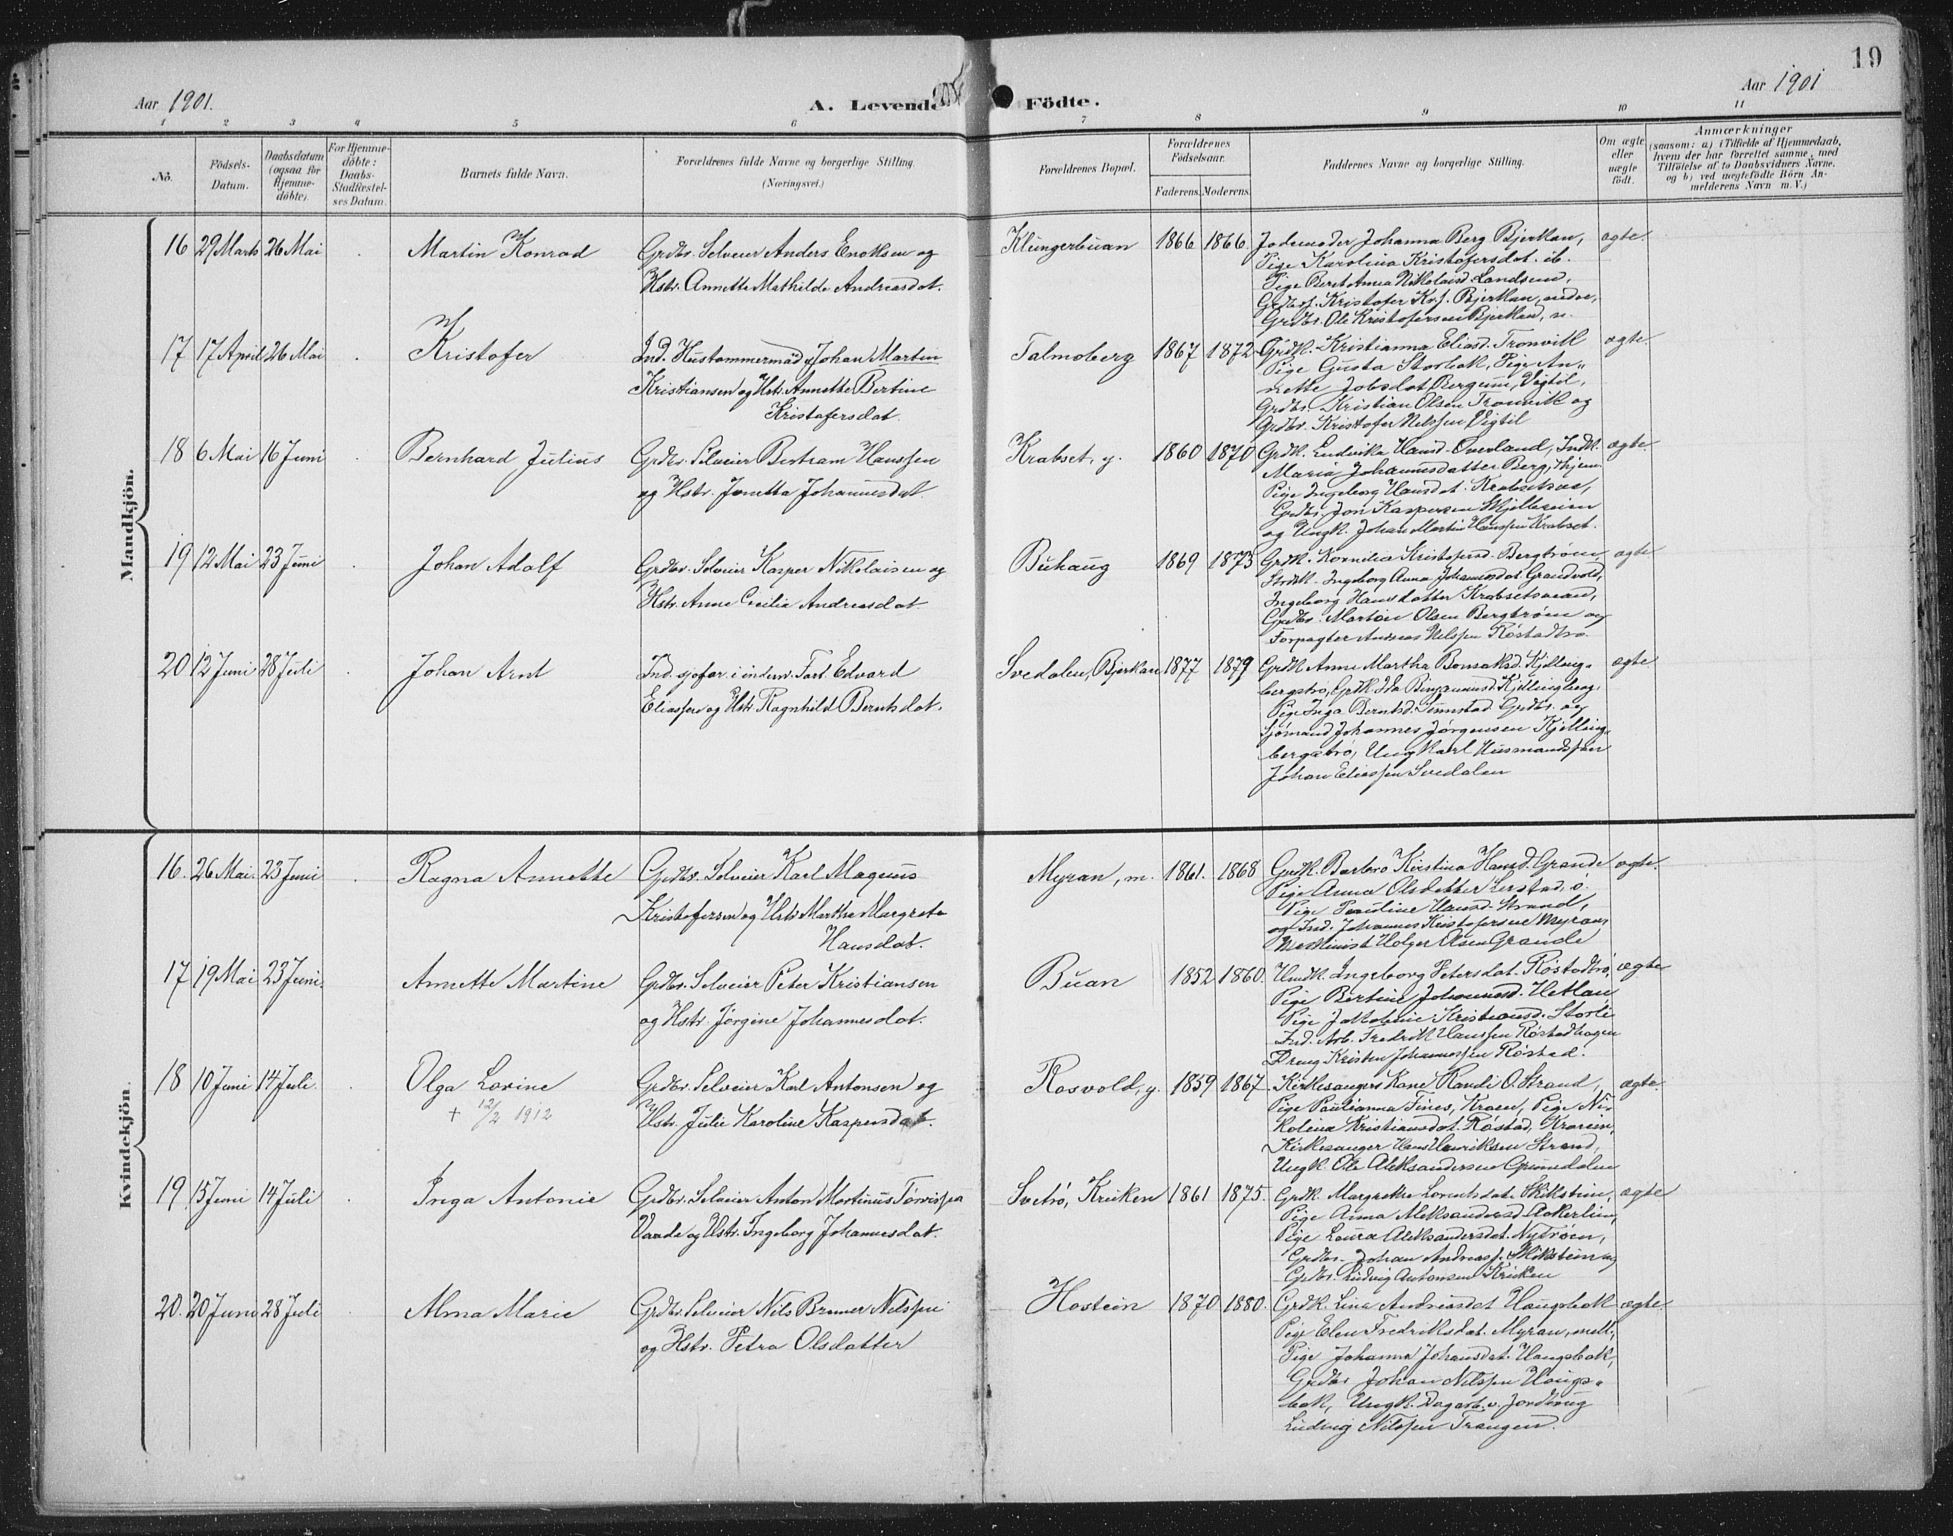 19
Aar 1901. A. Levende Födte. Aar 1901
1 2 3 4 5 6 7 8 9 10 11
No.
Födsels-Datum.
Daabsdatum (ogsaa for Hjemme-döbte).
For Hjemme-döbte: Daabs-Stadfæstel-ses Datum.
Barnets fulde Navn.
Forældrenes fulde Navne og borgerlige Stilling. (Næringsvei.)
Forældrenes Bopæl.
Forældrenes Födselsaar.
Faderens. Moderens.
Faddernes Navne og borgerlige Stilling.
Om ægte eller uægte födt.
Anmærkninger
(saasom: a) i Tilfælde af Hjemmedaab,
hvem der har forrettet samme, med
Tilföielse af to Daabsvidners Navne.
og b) ved uægtefödte Börn An-
melderens Navn m. V.)
Mandkjön.
16 29 Marts 26 Mai Martin Konrad
Grdbr. Selveier Anders Enoksen og
Hstr. Annette Mathilde Andreasdat.
Klungerbuan 1866 1866.
Jodemoder Johanna Berg Bjerkan,
Pige Karolina Kristofersdat. ib.
Pige Berit Anna Nikolaisd. Landsem,
Grdbrs. Kristofer Krs. Bjerkan, nedre,
Grdbr. Ole Kristofersen Bjerkan, n.
ægte.
17 17 April 26 Mai Kristofer
Ind. Hustømmermand Johan Martin
Kristiansen og Hstr. Annette Bertine
Kristofersdat.
Talmoberg 1867 1872
Grdk. Kristianna Eliasd. Tronvik
Pige Gusta Storbok, Pige An-
nette Jobsdat Bergem, Vigtil,
Grdbr. Kristian Olsen Tronvik og
Grdbr. Kristofer Nilssen Vigtil
ægte
18 6 Mai 16 Juni Bernhard Julius
Grdbr. Selveier Bertram Hanssen
og Hstr. Jonetta Johannesdat
Krabset, y. 1860 1870
Grdk. Ludvika Hansd. Overland, Indk.
Maria Johannesdatter Berg, Hjem.
Pige Ingeborg Hansdat. Krabsetsas,
Grdbr. Jon Kaspersen
og Ungk. Johan Martin Hanssen Krabset.
ægte.
19 12 Mai 23 Juni Johan Adolf
Grdbr. Selveier Kasper Nikolaisen og
Hstr. Anne Cecilia Andreasdat
Buhaug 1869 1873
Grdk. Kornilia Kristofersd. Bergtrøen,
Ingeborg Anna Johannesdat Grandvold,
Ingeborg Hansdatter Krabsetsaran,
Grdbr. Martin Olsen Bergtrøen og
Forpagter Andreas Nilssen Røstadtrø.
ægte
20 12 Juni 28 Juli Johan Arnt
Ind. sjøfar. i indenr. Fart Edvard
Eliassen og Hstr. Ragnhild Berntsdat.
Svedalen, Bjerkan 1877 1879
Grdk. Anne Martha Bonsaksd. Kjelling-
bergstrø, Grdk. Ida Benjaminsd. Kjellingberg.
Pige Inga Berntsd. Sunnstad Grdbr. og
Sjømand Johannes Jørgensen Kjelling-
bergstrø, Ungkarl Husmandssøn
Johan Eliassen Svedalen
ægte
Kvindekjön
16. 26 Mai. 23 Juni Ragna Annette
Grdbr. Selveier Karl Magnus
Kristofersen og Hstr. Martha Margreta
Hansdat.
Myran, m. 1861. 1868
Grdk. Barbro Kirstina Hansd. Grande
Pige Anna Olsdatter Lerstad ø.
Pige Pauline Hansd. Strand,
og Ind. Johannes Kristofersen Myran,
Maskinist Holger Olsen Grande
ægte.
17 19 Mai 23 Juni. Annette Martine
Grdbr. Selveier Peter Kristiansen
og Hstr. Jørgine Johannesdat.
Buan 1852 1860.
Hmdk. Ingeborg Petersdat. Røstadtrø,
Pige Bertine Johannesd. Hetlan
Pige Jakobine Kristiansd. Storli
Ind. Arb. Fredrik Hanssen Røstadhagen
Dreng Kristen Johannessen Røstad.
ægte
18 10 Juni 14 Juli. Olga Lovine
+ 12/2 1912
Grdbr. Selveier Karl Antonsen og
Hstr. Julie Karoline Kaspersdat.
Rosvold, y. 1859 1867
Kirkesangers Kone Randi O. Strand,
Pige Paulianna Fines, Kroen, Pige Ni-
kolina Kristiansdat. Røstad, Kroven,
Kirkesanger Hans Henriksen Strand,
Ungk. Ole Aleksandersen Grønndalen
ægte.
19 15 Juni 14 Juli Inga Antonie
Grdbr. Selveier Anton Martinus Tønnissen
Vaade og Hstr. Ingeborg Johannesdat.
Svetrø, Kruken 1861 1875.
Grdk. Margrethe Lorentsdat. Skikstein,
Pige Anna Aleksandersd Aakerlien,
Pige Laura Aleksandersdat. Nytrøen,
Grdbr. Johan Andreass. Skikstein og
Grdbr. Ludvig Antonsen Kruken
ægte
20. 20 Juni 28 Juli Alma Marie
Grdbr. Selveier Nils Brunar Nilssen
og Hstr. Petra Olsdatter
Hostein 1870 1880.
Grdk. Lina Andreasdat Haugsbak
Pige Elen Fredriksdat. Myran, mell.,
Pige Johanna Johansdat. Haugsbak,
Grdbr Johan Nilssen Haugs-
bak, Ungk. Dagarb. v. Jordbrug
Ludvig Nilssen Trangen.
ægte